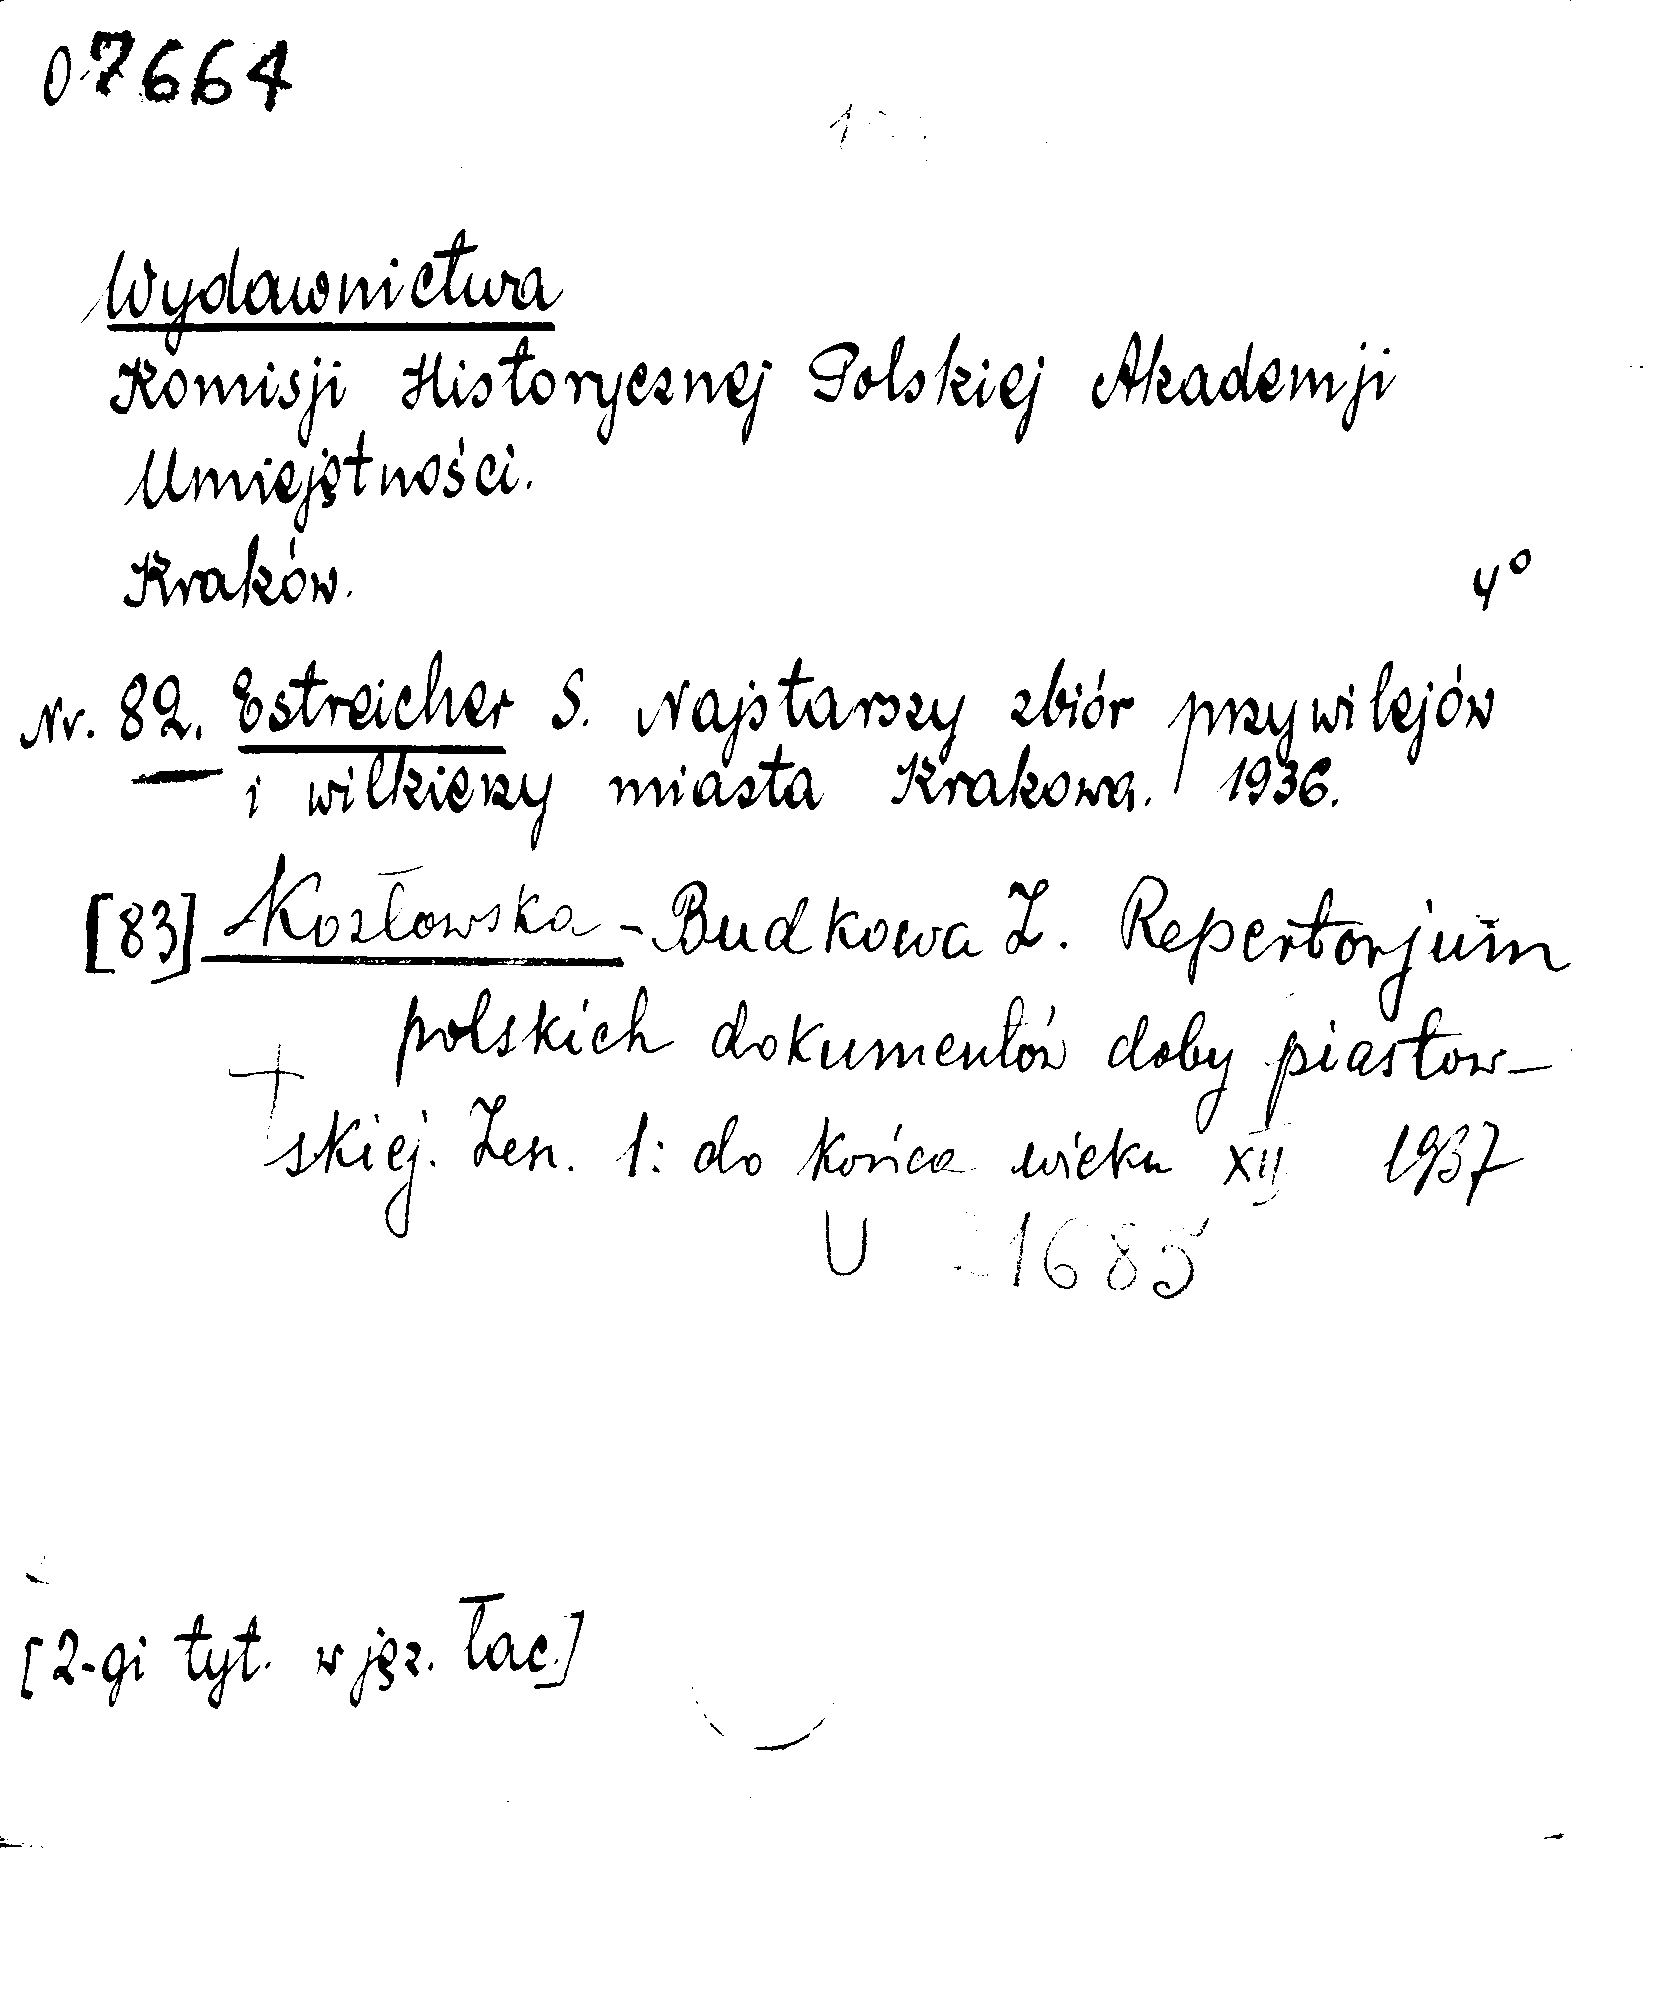 07664
Wydawnictwa
Komisji Historycznej Polskiej Akademji
Umiejętności.
Kraków.
4°
Nr. 82. Estreicher S. Najstarszy zbiór przywilejów
i wilkierzy miasta Krakowa. 1936.
[83] Kozłowska-Budkowa Z. Repertorjum
polskich dokumentów doby piastow-
skiej. Zesz. 1: do końca wieku XII 1937
U 1685
[2-gi tyt. w jęz. łac.]